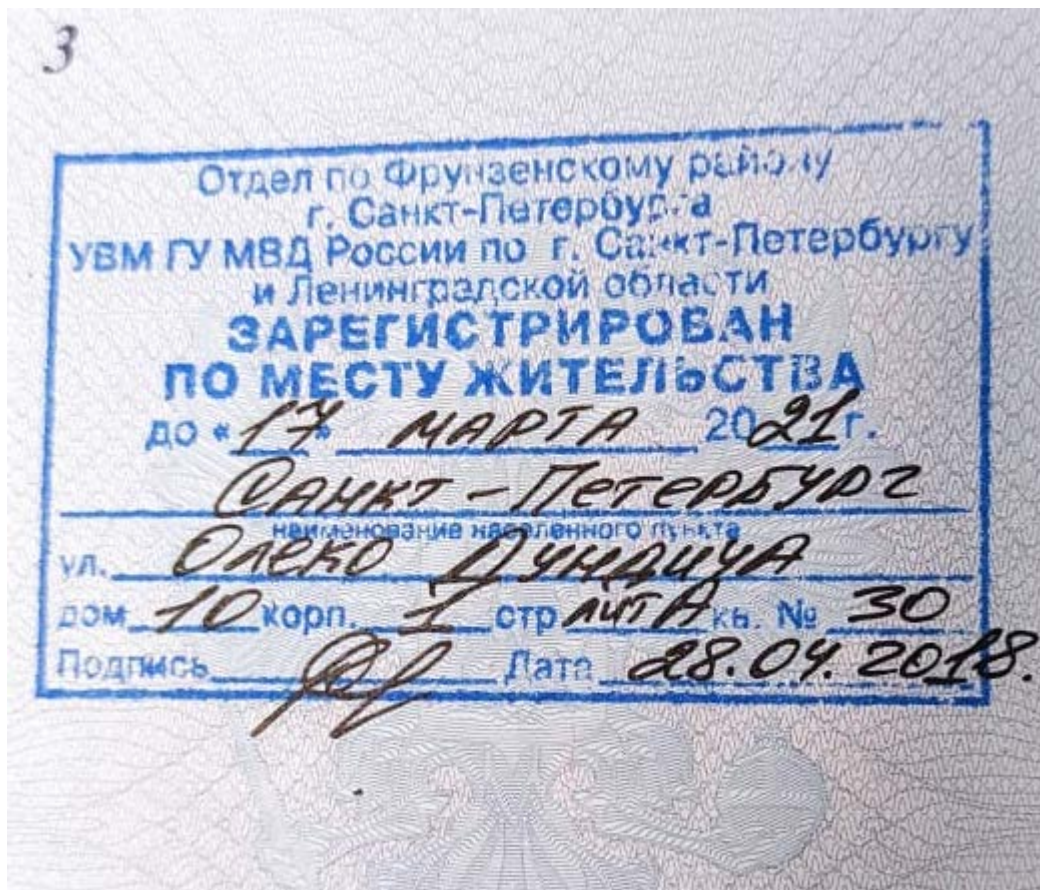 3
Отдел по Фрунзенскому району
г. Санкт-Петербурга
УВМ ГУ МВД России по г. Санкт-Петербургу
и Ленинградской области
ЗАРЕГИСТРИРОВАН
ПО МЕСТУ ЖИТЕЛЬСТВА
до «17» МАРТА 2021 г.
САНКТ-ПЕТЕРБУРГ
наименование населенного пункта
ул. Олеко Дундича
дом 10 корп. 1 стр лит А кв. № 30
Подпись Дата 28.04.2018.